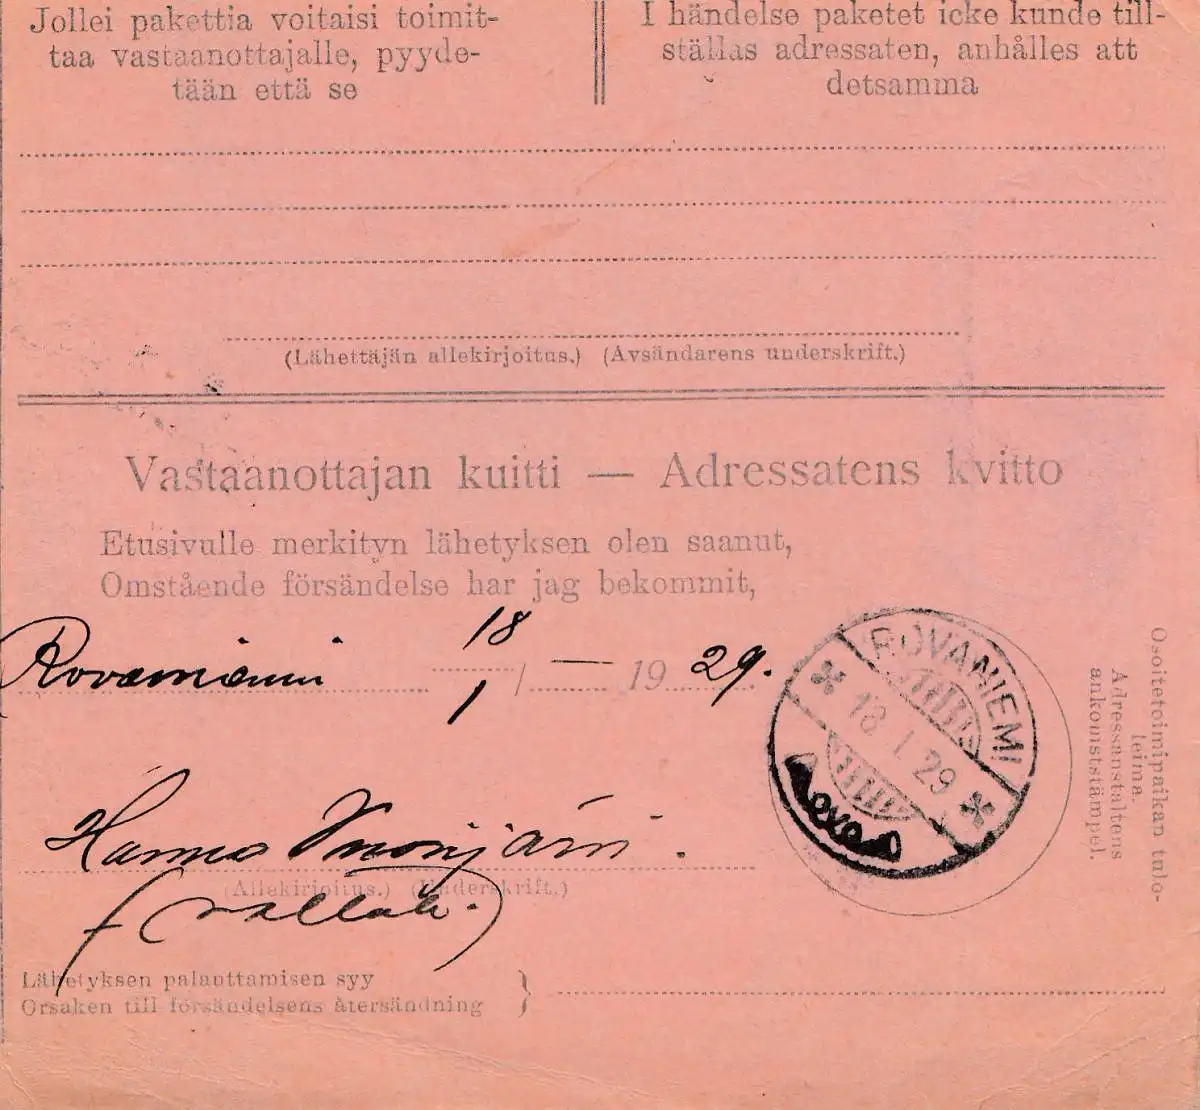 Jollei pakettia voitaisi toimit-
taa vastaanottajalle, pyyde-
tään että se
I händelse paketet icke kunde till-
ställas adressaten, anhålles att
detsamma
(Lähettäjän allekirjoitus.) (Avsändarens underskrift.)
Vastaanottajan kuitti — Adressatens kvitto
Etusivulle merkityn lähetyksen olen saanut,
Omstående försändelse har jag bekommit,
Rovaniemi 18/1 — 1929.
ROVANIEMI
18.I.29
Osoitetoimipaikan tulo-
leima.
Adressanstaltens
ankomststämpel.
Hanna
(Allekirjoitus.) (Underskrift.)
Lähetyksen palauttamisen syy
Orsaken till försändelsens återsändning